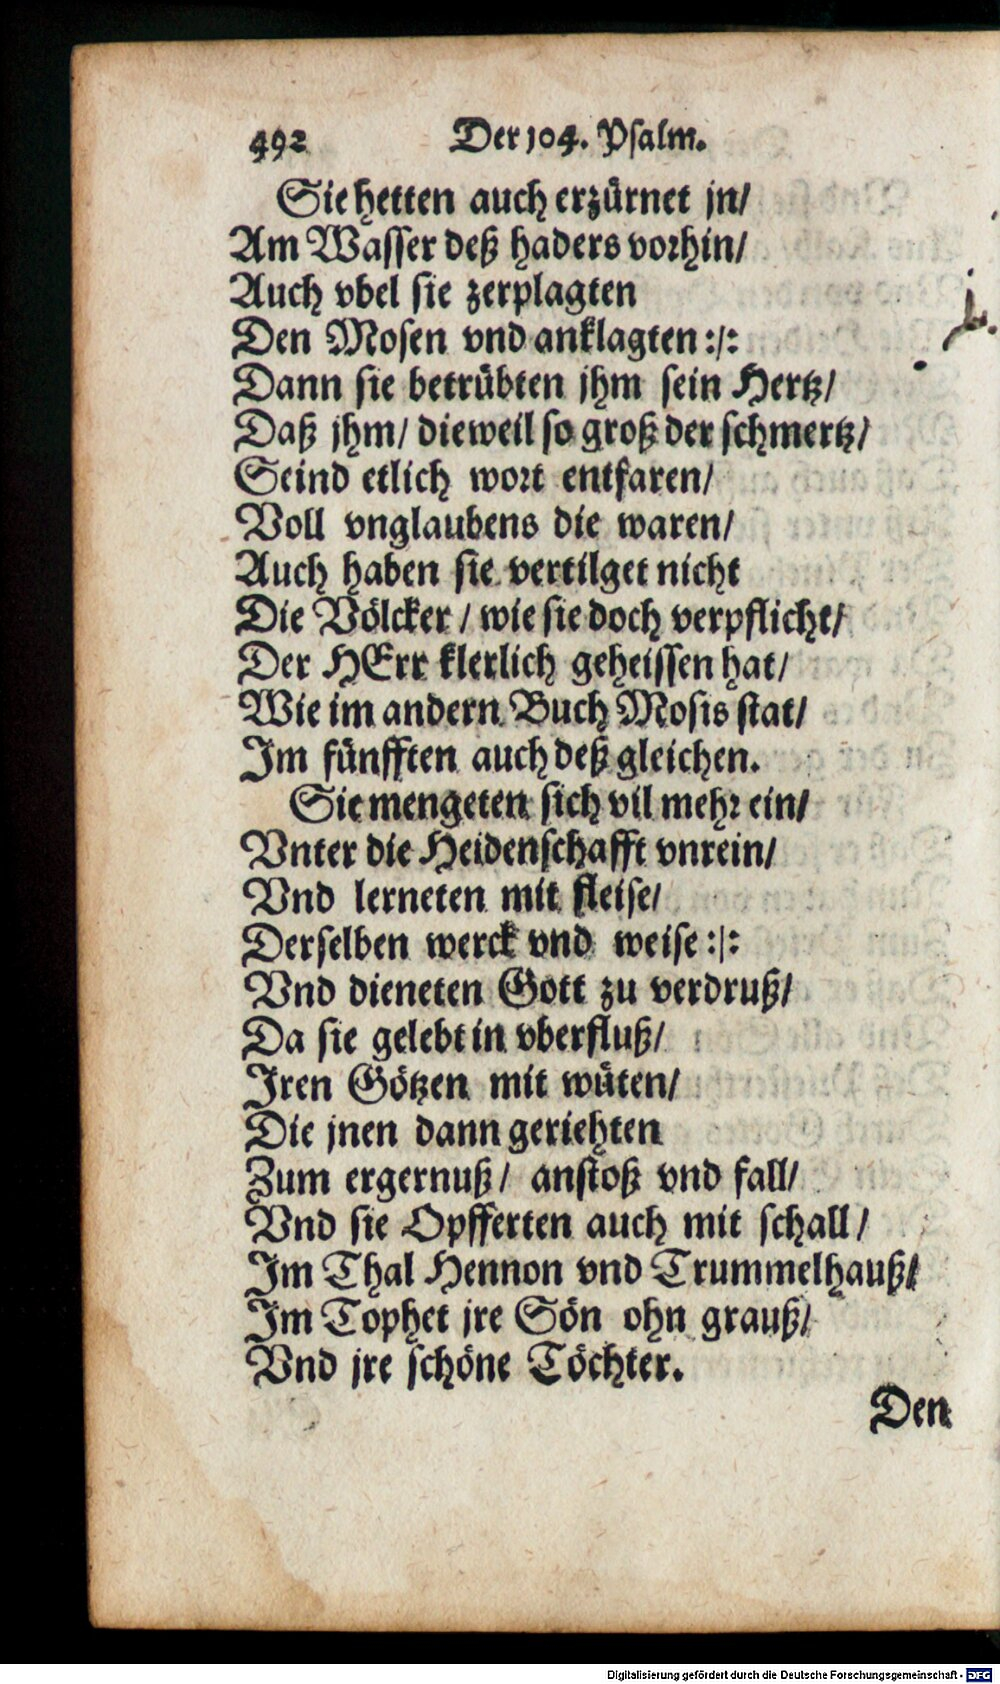 492 Der 104. Psalm.
Sie hetten auch erzürnet jn/
Am Wasser deß haders vorhin/
Auch vbel sie zerplagten
Den Mosen vnd anklagten :/:
Dann sie betrübten jhm sein Hertz/
Daß jhm/ dieweil so groß der schmertz/
Seind etlich wort entfaren/
Voll vnglaubens die waren/
Auch haben sie vertilget nicht
Die Völcker / wie sie doch verpflicht/
Der HErr klerlich geheissen hat/
Wie im andern Buch Mosis stat/
Im fünfften auch deß gleichen.
Sie mengeten sich vil mehr ein/
Vnter die Heidenschafft vnrein/
Vnd lerneten mit fleise/
Derselben werck vnd weise :/:
Vnd dieneten Gott zu verdruß/
Da sie gelebt in vberfluß/
Iren Götzen mit wüten/
Die jnen dann geriehten
Zum ergernuß/ anstoß vnd fall/
Vnd sie Opfferten auch mit schall /
Im Thal Hennon vnd Trummelhauß/
Im Tophet jre Sön ohn grauß/
Vnd jre schöne Töchter.
Den
Digitalisierung gefördert durch die Deutsche Forschungsgemeinschaft - DFG